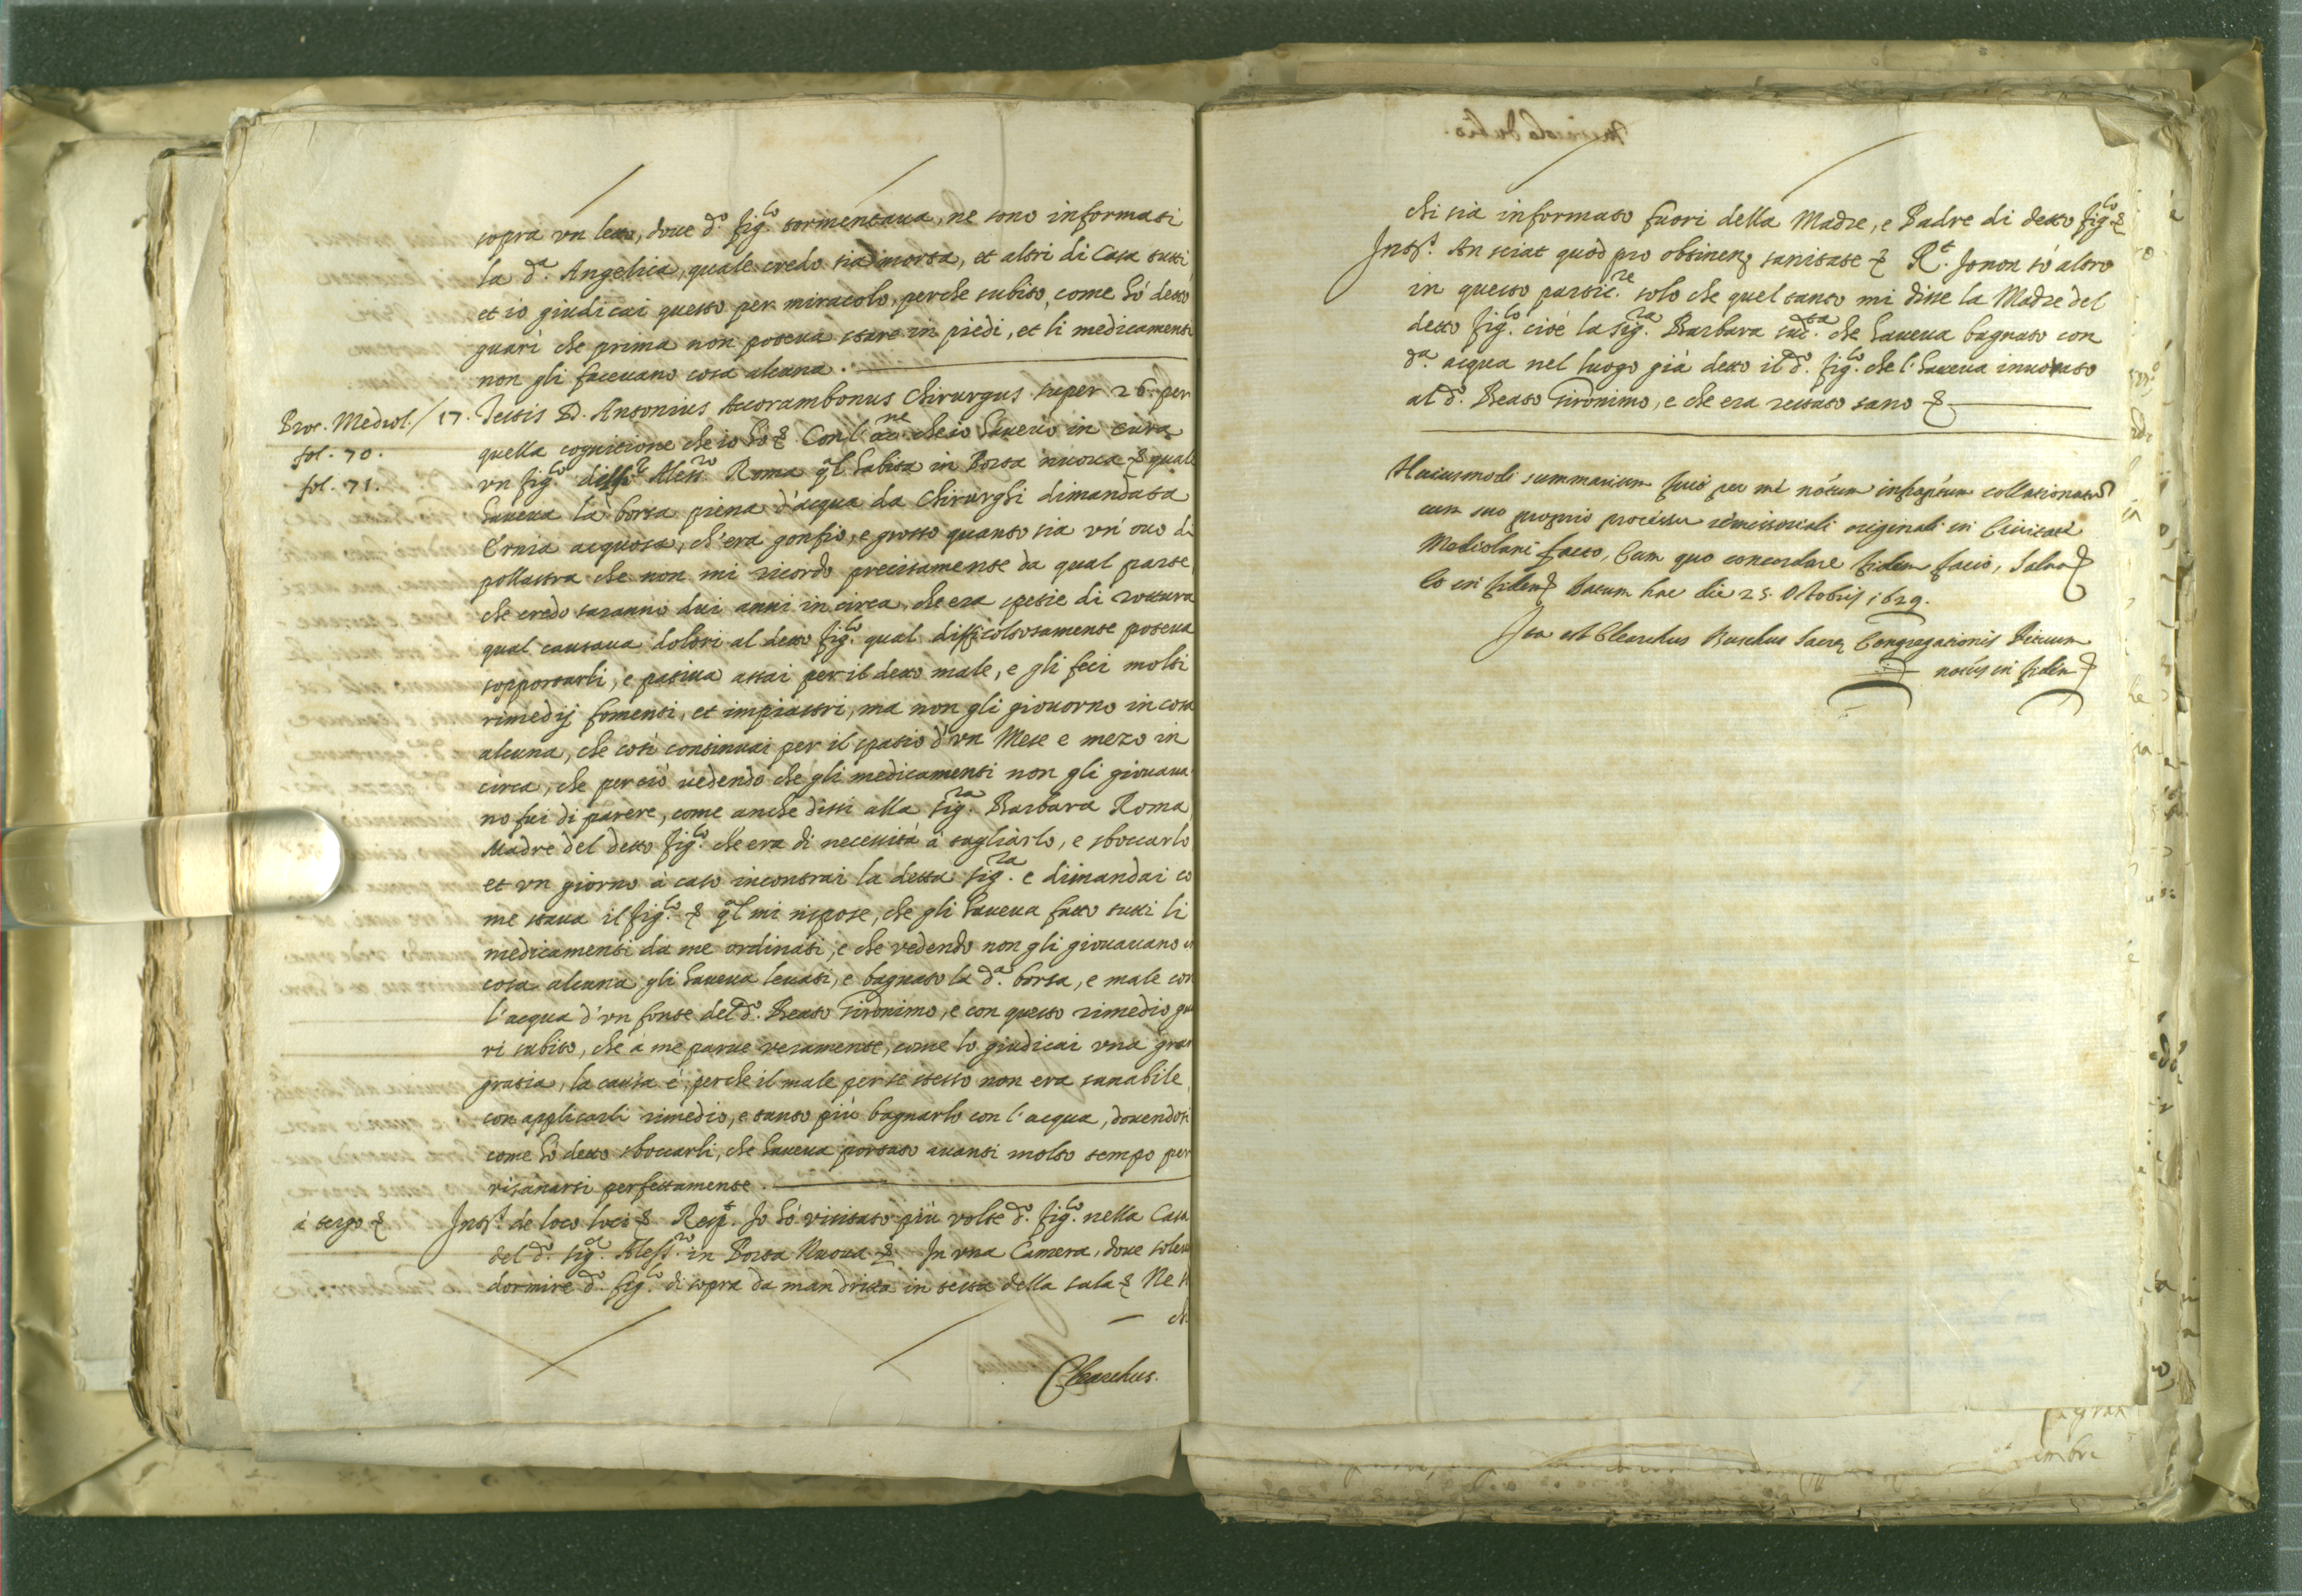 sopra un letto, doue d.º fig.lo tormentaua, ne sono informati
la d.ª Angelica, quale credo sia morta, et altri di Casa tutti
et io giudicai questo per miracolo, perche subito, come hò detto
guarì che prima non poteua stare in piedi, et li medicamenti
non gli faceuano cosa alcuna.
Proc. Mediol. / 17. Testis D. Antonius Accorambonus Chirurgus super 26. per
fol. 70. quella cognitione che io hò & Con l'occ.ne che io haueuo in cura
fol. 71. un fig.lo del Sig.r Aless.ro Roma q̃l habita in Porta nuoua & quale
haueua la borsa piena d'acqua da Chirurghi dimandata
Ernia acquosa, ch'era gonfio, e grosso quanto sia un' ouo di
pollastra che non mi ricordo precisamente da qual parte,
che credo saranno dui anni in circa, che era spetie di rottura
qual causaua dolori al detto fig.lo qual difficoltosamente poteua
sopportarli, e patiua assai per il detto male, e gli feci molti
rimedij fomenti, et impiastri, ma non gli giouorno in cosa
alcuna, che così continuai per il spatio d'un Mese e mezo in
circa, che perciò uedendo che gli medicamenti non gli giouaua
no fui di parere, come anche dissi alla Sig.ra Barbara Roma
Madre del detto fig.lo che era di necessità à tagliarlo, e sboccarlo
et un giorno à caso incontrai la detta Sig.ra e dimandai co
me staua il fig.lo & q̃l mi rispose, che gli haueua fatto tutti li
medicamenti da me ordinati, e che vedendo non gli giouauano in
cosa alcuna gli haueua leuati, e bagnato la d.ª borsa, e male con
l'acqua d'un fonte del d.º Beato Gironimo, e con questo rimedio gua
rì subito, che à me parue veramente, come lo giudicai una gran
gratia, la causa è, perche il male per se stesso non era sanabile
con applicarli rimedio, e tanto più bagnarlo con l'acqua, douendosi
come hò detto sboccarli, che haueua portato auanti molto tempo per
risanarsi perfettamente.
à tergo & Int.s de loco loci & Resp.t Io hò visitato più volte d.º fig.lo nella Casa
del d.º Sig.r Aless.ro in Porta Nuoua & In una Camera, doue soleua
dormire d.º fig.lo di sopra da man dritta in testa della sala & Ne sò
chi
Clearchus.
chi sia informato fuori della Madre, e Padre di detto fig.lo &
Int.s An sciat quòd pro obtinen. sanitate & R.t Io non sò altro
in questo partic.re solo che quel tanto mi disse la Madre del
detto fig.lo cioè la Sig.ra Barbara sud.ta che haueua bagnato con
d.ª acqua nel luogo già detto il d.º fig.lo che l'haueua inuotato
al d.º Beato Gironimo, e che era restato sano &
Huiusmodi summarium fuit per me notum infraptum collationatum
cum suo proprio processu remissoriali originali in Ciuitate
Mediolani facto, Cum quo concordare fidem facio, Saluo &
Et in fidem & Datum hac die 25. Octobris 1629.
Ita est Clearchus Buschus Sacrę Congregationis Rituum
notus in fidem &